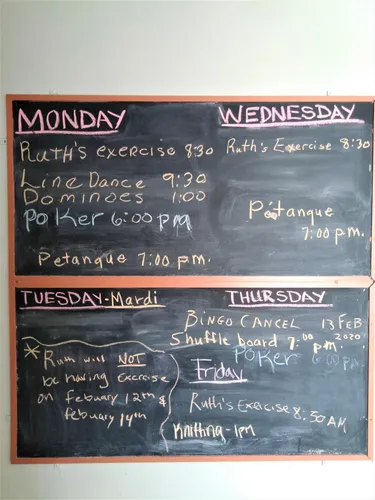 MONDAY
Ruth's exercise 8:30
Line Dance 9:30
Dominoes 1:00
Poker 6:00 pm
Petanque 7:00 p.m.
WEDNESDAY
Ruth's Exercise 8:30
Pétanque
7:00 pm.
TUESDAY-Mardi
* Ruth will NOT
be having Exercise
on Febuary 12th &
febuary 14th
THURSDAY
BINGO CANCEL 13 FEB
2020
Shuffle board 7:00 pm.
POKER 6:00 pm
Friday
Ruth's Exercise 8:30 AM
Knitting - 1PM